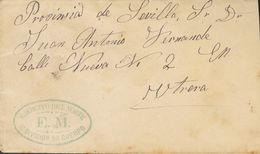 Provinsia de Sevilla, Sr. Dn
Juan Antonio Hernande
Calle Nueva Nº 2
Utrera
EJERCITO DEL NORTE
E. M.
DIVISION DE CUERPO